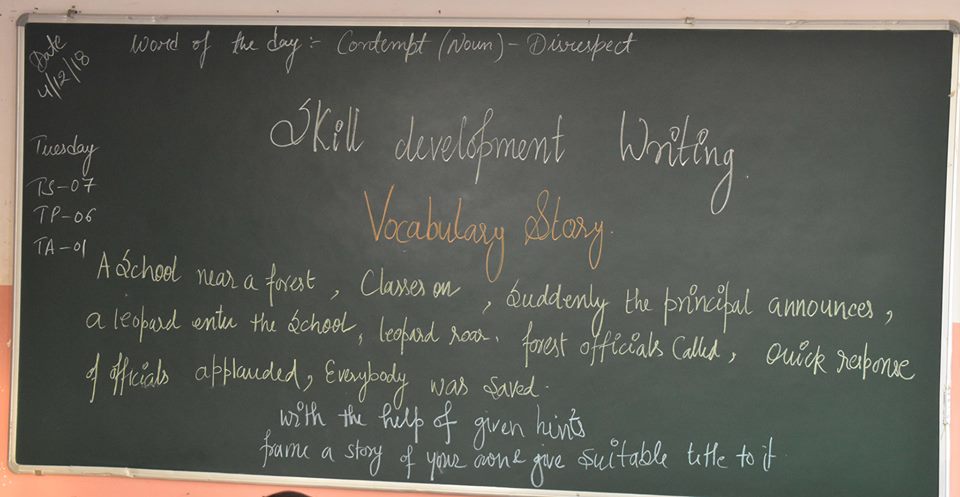 Date
4/12/18
Word of the day :- Contempt (Noun) - Disrespect
Skill development Writing.
Tuesday
TS-07
TP-06
TA-01
Vocabulary Story.
A School near a forest, Classes on, Suddenly the principal announces,
a leopard enter the School, leopard roar. forest officials Called, Quick response
of officials applauded, Everybody was saved.
with the help of given hints
frame a story of your own & give suitable title to it